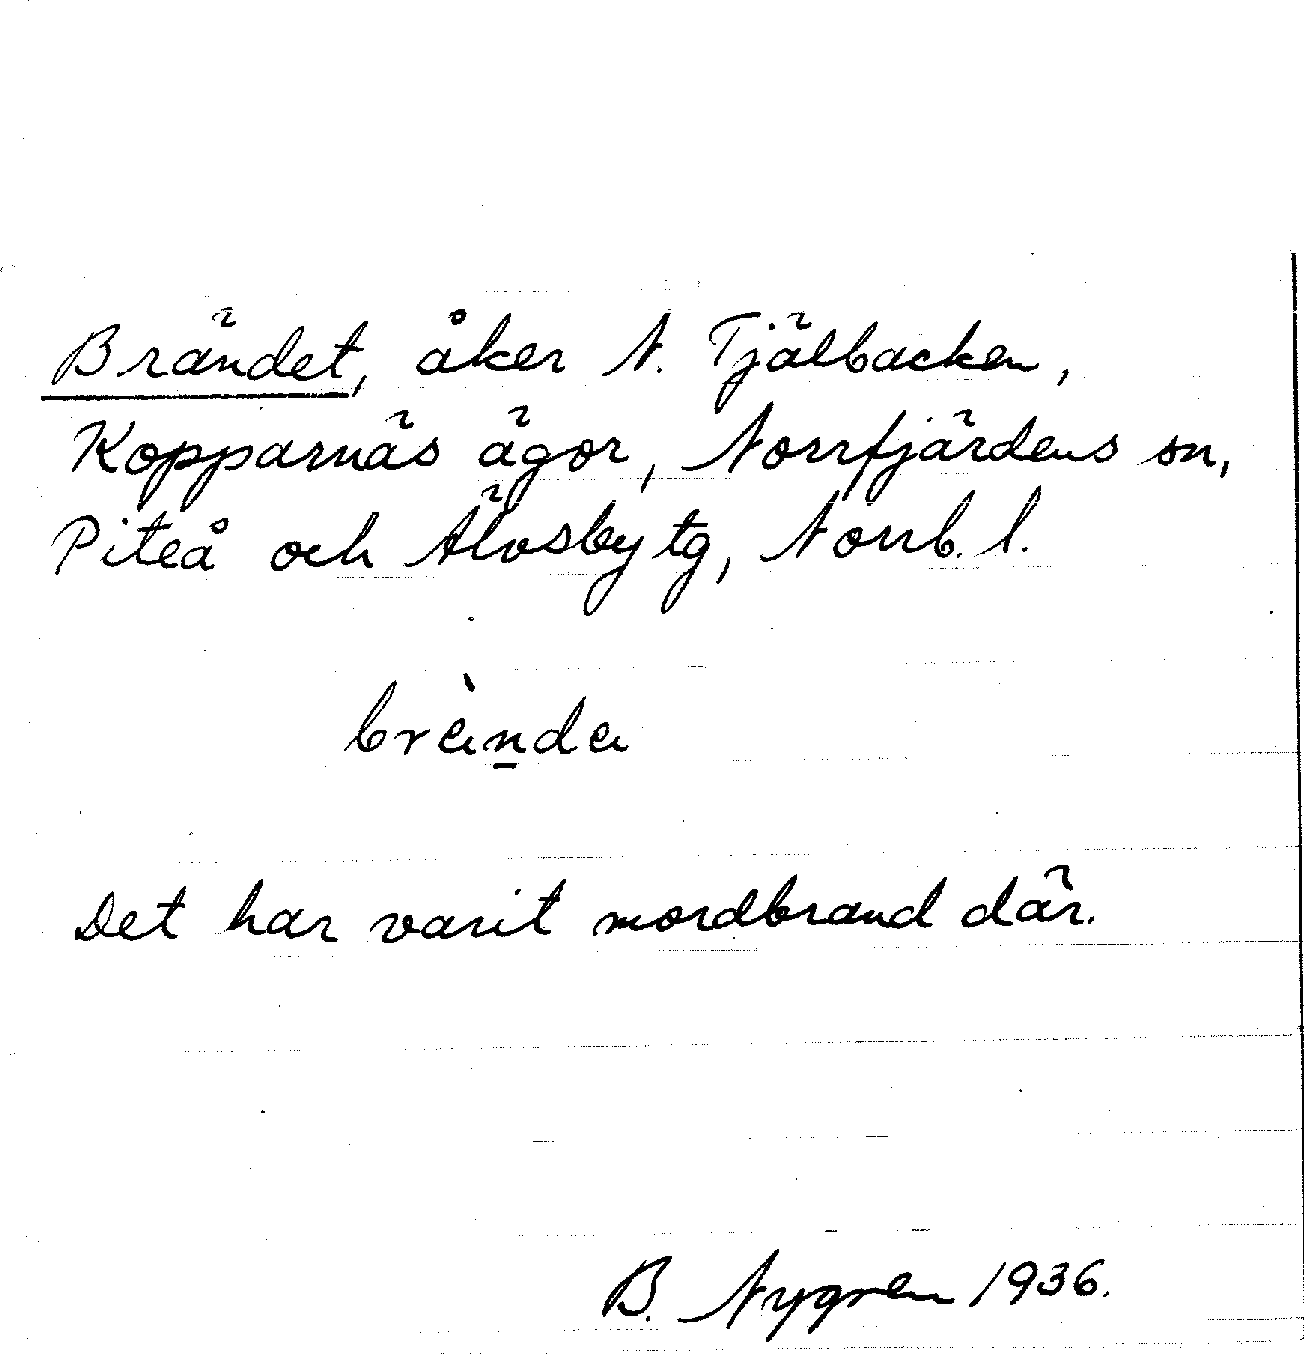 Brändet, åker N. Tjälbacken,
Kopparnäs ägor, Norrfjärdens sn,
Piteå och Älvsby tg, Norrb. l.
brànda
Det har varit mordbrand där.
B. Nygren 1936.